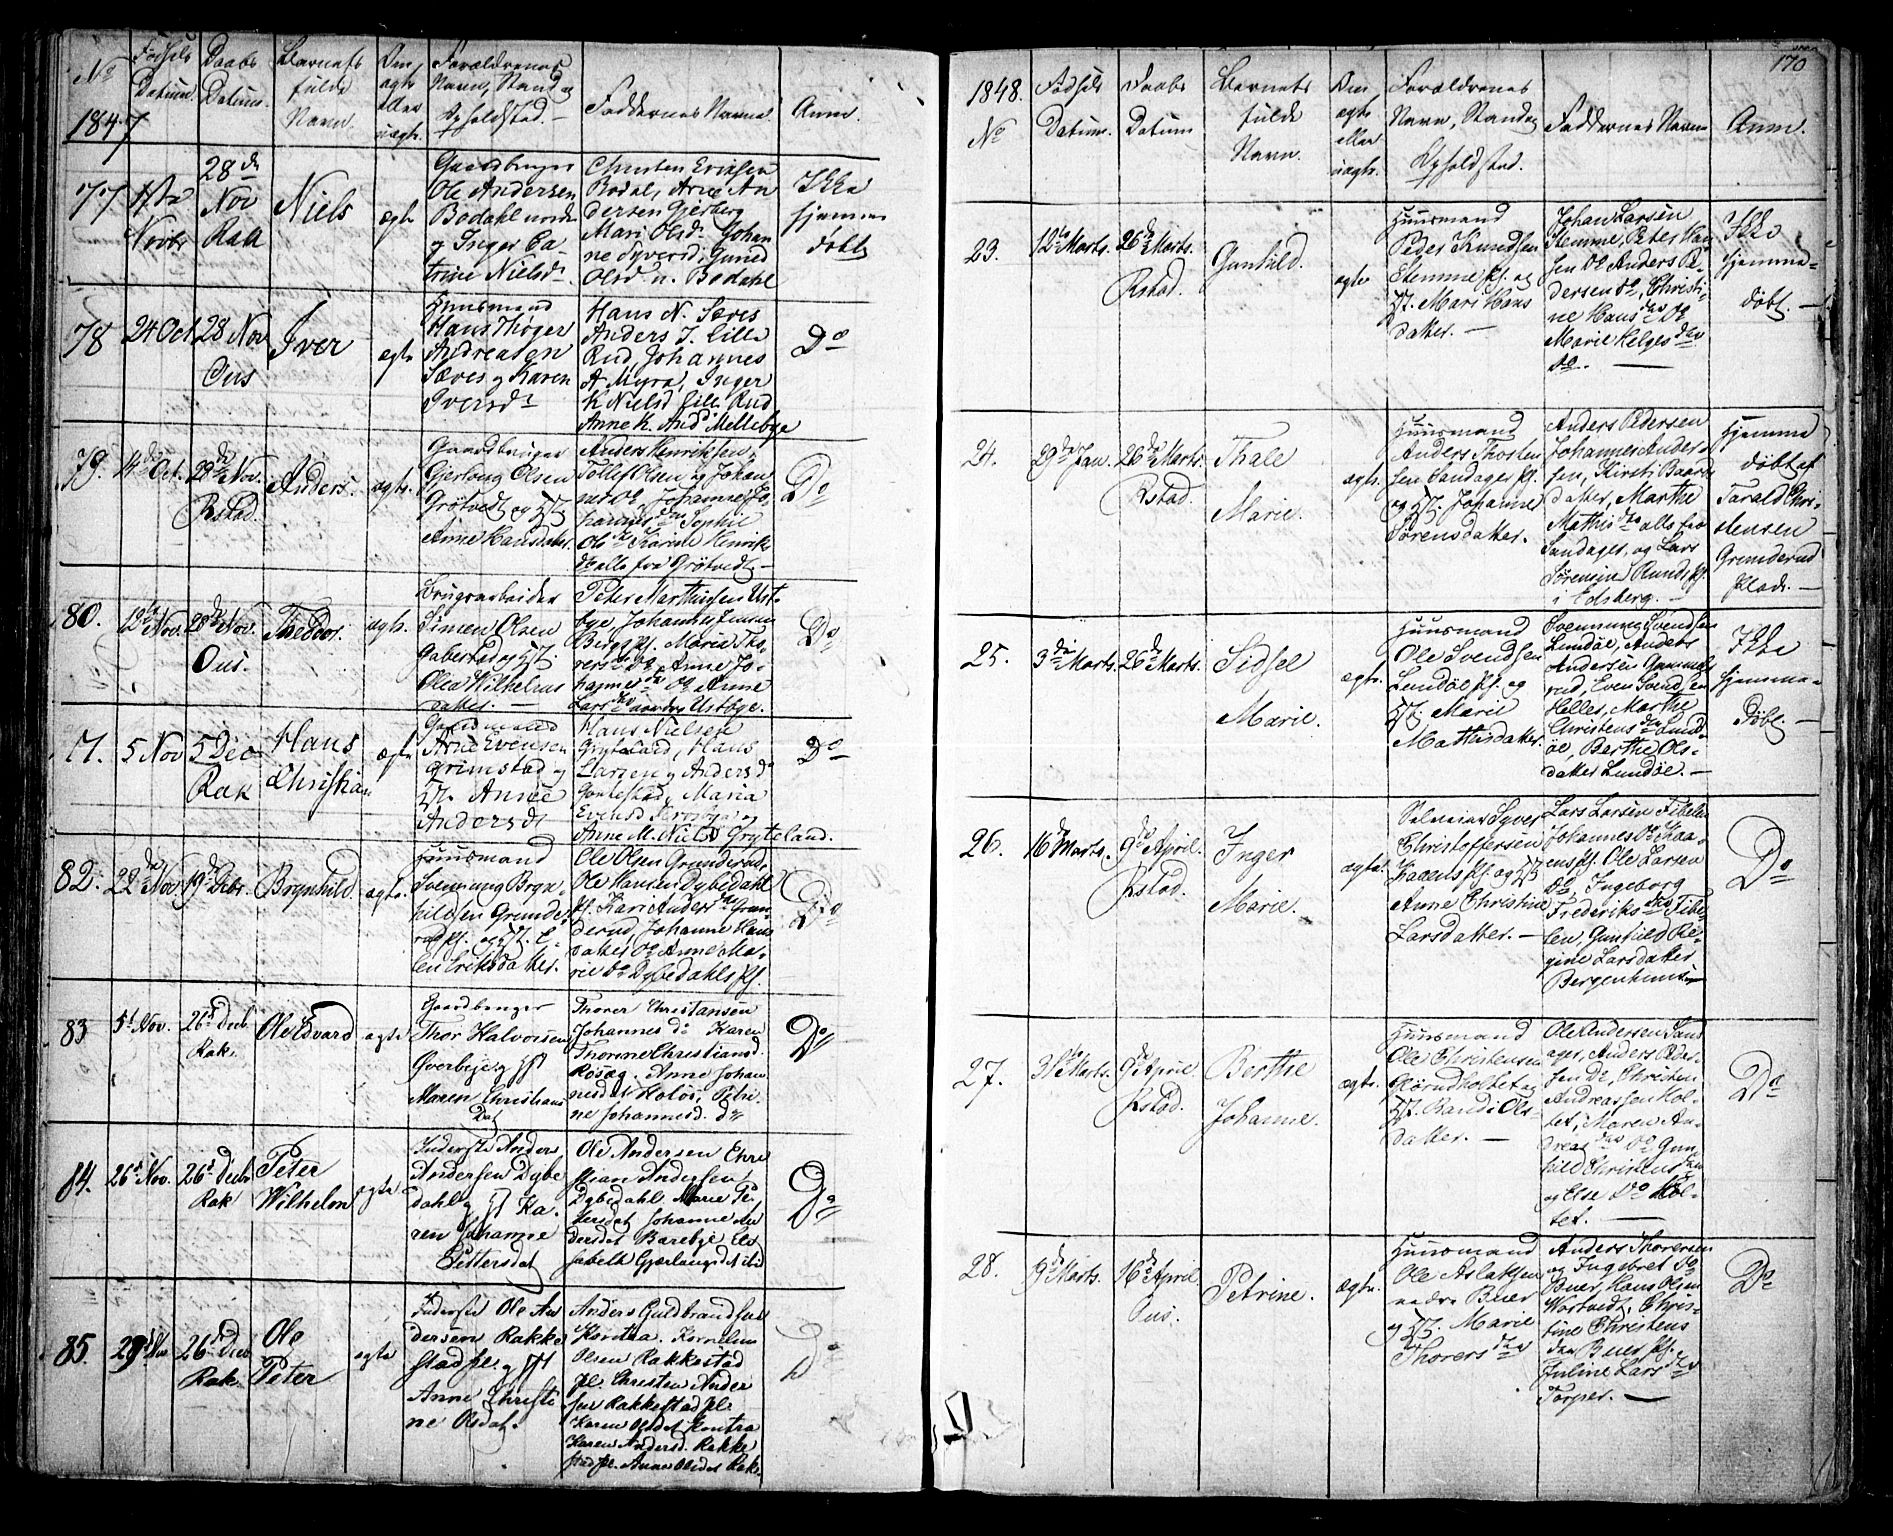 No
1847
Fødsels
Datum.
Daabs
Datum.
Barnets
fulde
Navn.
Om
ægte
eller
uægte.
Forældrenes
Navn, Stand og
Opholdsted.
Faddernes Navne
Anm.
77
Novbr
28de
Nov
Rak
Niels
ægte
Gaardbruger
Ole Andersen
Bodahl nordre
og Inger Ca
trine Nielsdr
Christen Eriksen
Bodal, Arne An
dersen Gjerberg
Mari Olsdr Johan
ne Syversd, Guned
Olsd n. Bodahl
Ikke
hjemme
døbt
78
24 Oct
28 Nov
Ous
Iver
ægte
Huusmand
Hans Thøger
Andreasen
Sæves og Karen
Iversdr
Hans N. Sæves
Anders J. Lille
Rud, Johannes
A. Myra, Inger
K Nielsd Lille Rud
Anne K. Andd Mellebye
Do
79.
14de Oct.
28de Nov.
Rstad.
Anders.
ægte.
Gaardbruger
Gjerlong Olsen
Grötvedt og H.
Anne Hansdatter.
Anders Henriksen,
Tollef Olsen og Johan
nes do, Johanne Jo
hannesdtr Sophie
Olsdr Karine Henriks
dr alle fra Grötvedt
Do
80.
12te Nov.
28de Nov.
Ous.
Theodor.
ægte.
Brugsarbeider
Simen Olsen
Gabestad og H.
Olea Wilhelms
datter.
Peter Marthissen Ust-
bye, Johannes Jensen
Berg pl. Maria Tho-
rersdr do, Anne Jo-
hannesdr do Anne
Larsdr nordre Ustbye.
Do
17.
5 Nov
5 Dec
Rak
Hans
Christian
ægte
Gaardmand
Arne Evensen
Grimstad og
H. Anne
Andersdr
Hans Nielsen
Gryteland, Hans
Larsen og Andersd
Maria
Evensd
Anne M. Nielsd Gryteland.
Do
82.
22de Nov
19de Debr.
Brynhild.
ægte.
Huusmand
Svennung Bryn-
hildsen Grunde-
rud pl. og H. E-
len Eriksdatter.
Ole Olsen Grunderud,
Ole Hansen Dybedahl
pl. Kari Andersdr Grun-
derud, Johanne Hans
datter do Anne Ma-
rie do Dybedahls pl.
Do
83
5t Nov.
26t Decb.
Rak.
Ole Edvard
ægte
Gaardbruger
Thor Halvorsen
Øverbye og H
Maren Christians
Dat
Thorer Christansen
Johannes do Karen
Thorine Christiansd.
Rosæg. Anne Johan
nesdat Holös, Petri-
ne Johannesd. do
Do
84.
26t Nov.
26t Decbr
Rak
Peter
Wilhelm
ægte
Inderste Anders
Andersen Dybe
dahl og H Ka-
ren Johanne
Pettersdat
Ole Andersen Chri
stian Andersen
Dybedahl Marie Pe
tersdat Johanne An
dersdat Barebye Eli
sabeth Gjerlaugsdat ibid
Do
85.
29t Nov
26t Decb
Rak.
Ole
Peter
ægte
Inderste Ole An
dersen Rakke
stad pl. og H
Anne Christi
ne Olsdat.
Anders Guldbrandsen
Kontra. Kornelius
Olsen Rakkestad
pl. Christen Ander
sen Rakkestad pl.
Karen Olsdat Kontra
Karen Andersd. Rakke
stad pl. Anne Olsdat Rak.
Do
170
1848.
No
Fødsels
Datum.
Daabs
Datum
Barnets
fulde
Navn.
Om
ægte
eller
uægte.
Forældrenes
Navn, Stand og
Opholdsted.
Faddernes Navne
Anm.
23.
12te Marts.
26de Marts.
Rstad.
Gunhild.
ægte
Huusmand
Peder Knudsen
Stemme pl. og
H. Mari Hans
datter.
Johan Larsen
Stemme, Peter Han
sen do Anders Pe-
dersen do, Christi-
ne Hansdtr do
Marie Helgesdtr
do.
Ikke
hjemme-
døbt.
24.
29de Jan.
26de Marts.
Rstad.
Thale
Marie.
ægte.
Huusmand
Anders Thosten
sen Sandager pl.
og H. Johanne
Sörensdatter.
Anders Pedersen
Johannes Ander-
sen, Kirsti Baards
datter, Marthe
Mathisdtr alle fra
Sandager, og Lars
Sörensen Runds pl.
i Edsberg.
Hjemme
døbt af
Tarald Chri-
stensen
Grunderud
plads.
25.
3die Marts.
26de Marts.
Sidsel
Marie.
ægte.
Huusmand
Ole Svendsen
Lundöe pl. og
H. Marie
Mathisdatter.
Svennung Svendsen
Lundöe, Anders
Andersen Gammels
rud, Even Svendsen
Heller, Marthe
Christensdtr Lund-
öe, Berthe Ols-
datter Lundöe.
Ikke
hjemme-
døbt.
26.
16de Marts.
9de April.
Rstad.
Inger
Marie.
ægte.
Syver
Christoffersen
Kaaens pl. og H
Anne Christine
Larsdatter.
Lars Larsen Fibelen
Johannes do Kaa-
ens pl. Ole Larsen
do, Ingeborg
Frederiksdtr Fibe-
len, Gunhild Re-
gine Larsdatter
Bergenhuus
Do
27.
31te Marts.
9de April
Rstad.
Berthe
Johanne.
ægte.
Huusmand
Ole Christensen
Körnudholtet og
H. Randi Ols-
datter.
Ole Andersen Sand
ager, Anders Peder-
sen do, Christen
Andreassen Hol-
tet, Maren An-
dreasdtr do Gun-
hild Christensdtr
og Else do Hol-
tet.
Do
28.
19de Marts.
16de April
Ous.
Petrine.
ægte.
Huusmand
Ole Aslaksen
nedre Buer
og H. Marie
Thorersdtr
Anders Thorersen
og Ingebret do
Buer, Hans Olsen
Wortvedt, Chris-
tine Christens
dtr Buer pl.
Juline Larsdtr
Torper.
Do